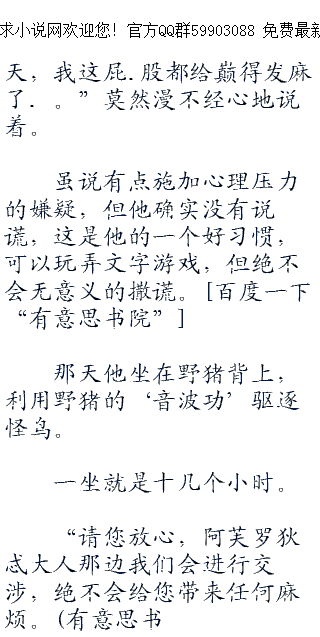 求小说网欢迎您！官方QQ群59903088 免费最新
天，我这屁.股都给巅得发麻
了．。”莫然漫不经心地说
着。
虽说有点施加心理压力
的嫌疑，但他确实没有说
谎，这是他的一个好习惯，
可以玩弄文字游戏，但绝不
会无意义的撒谎。[百度一下
“有意思书院”]
那天他坐在野猪背上，
利用野猪的‘音波功’驱逐
怪鸟。
一坐就是十几个小时。
“请您放心，阿芙罗狄
忒大人那边我们会进行交
涉，绝不会给您带来任何麻
烦。(有意思书